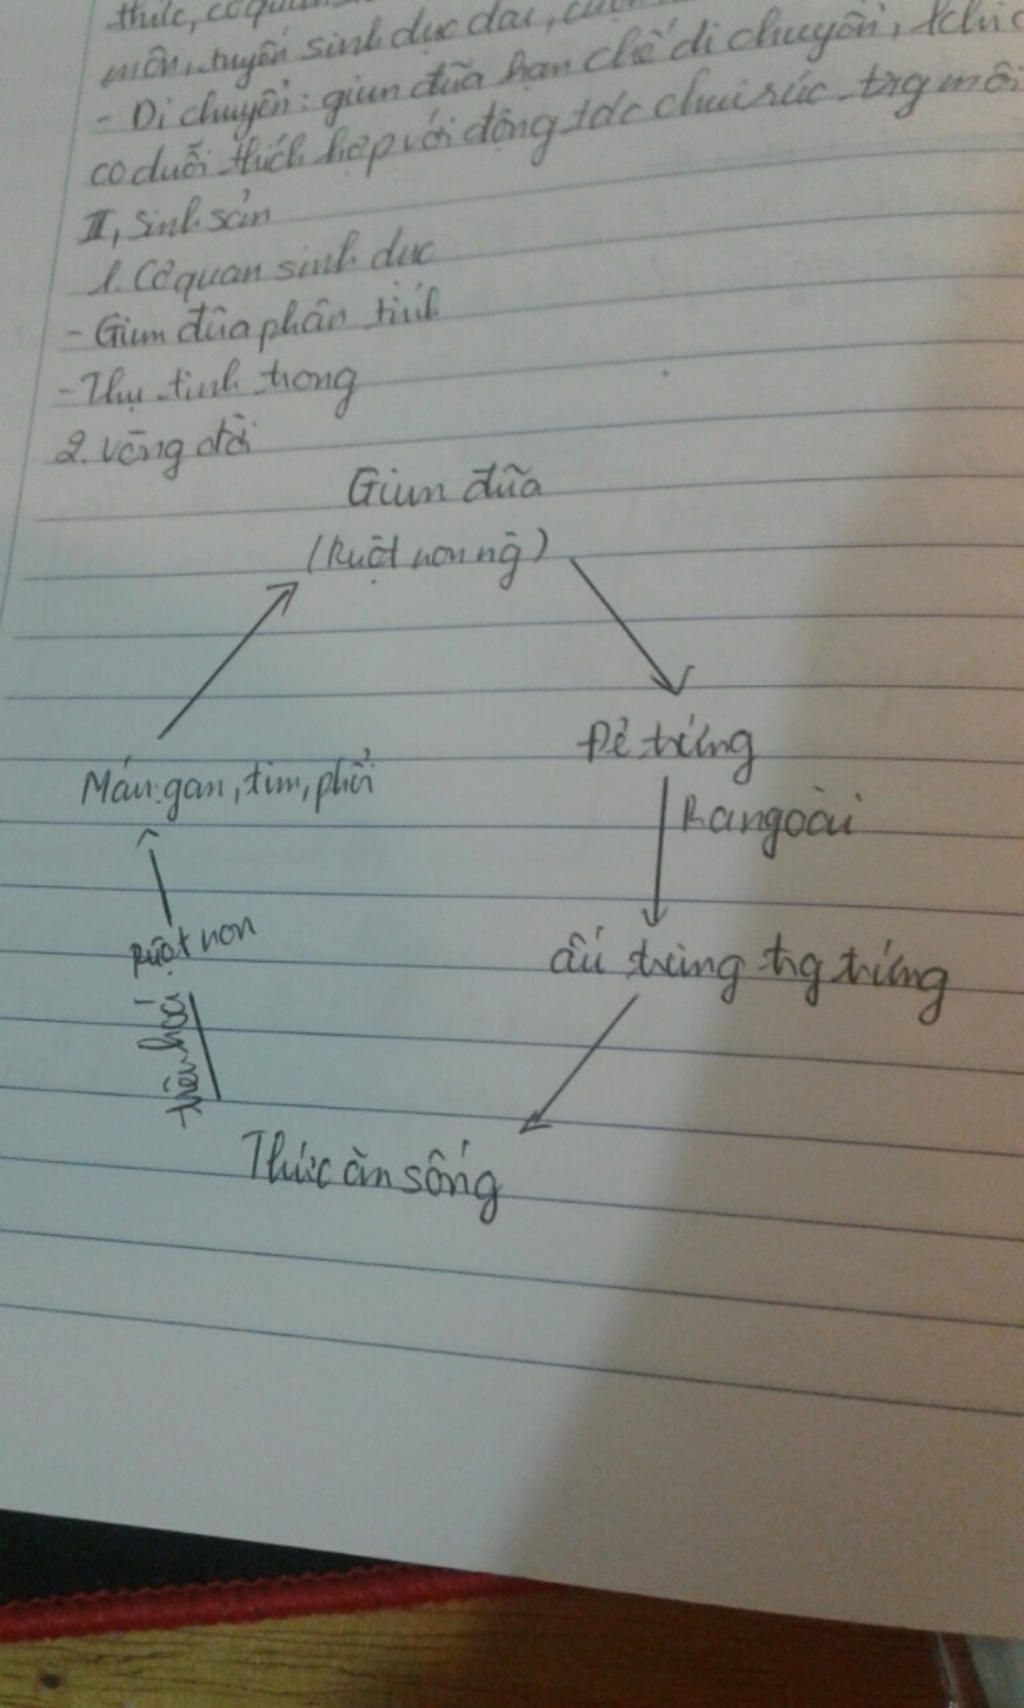 thức, cơ quan
môn, tuyến sinh dục dài,
- Di chuyển: giun đũa hạn chế di chuyển, khi c
co duỗi thích hợp với động tác chui rúc trg môi
II, Sinh sản
1. Cơ quan sinh dục
- Giun đũa phân tính
- Thụ tinh trong
2. Vòng đời
Giun đũa
(Ruột non ng)
Đẻ trứng
Máu: gan, tim, phổi
Ra ngoài
Ruột non
ấu trùng trg trứng
tiêu hoá
Thức ăn sống